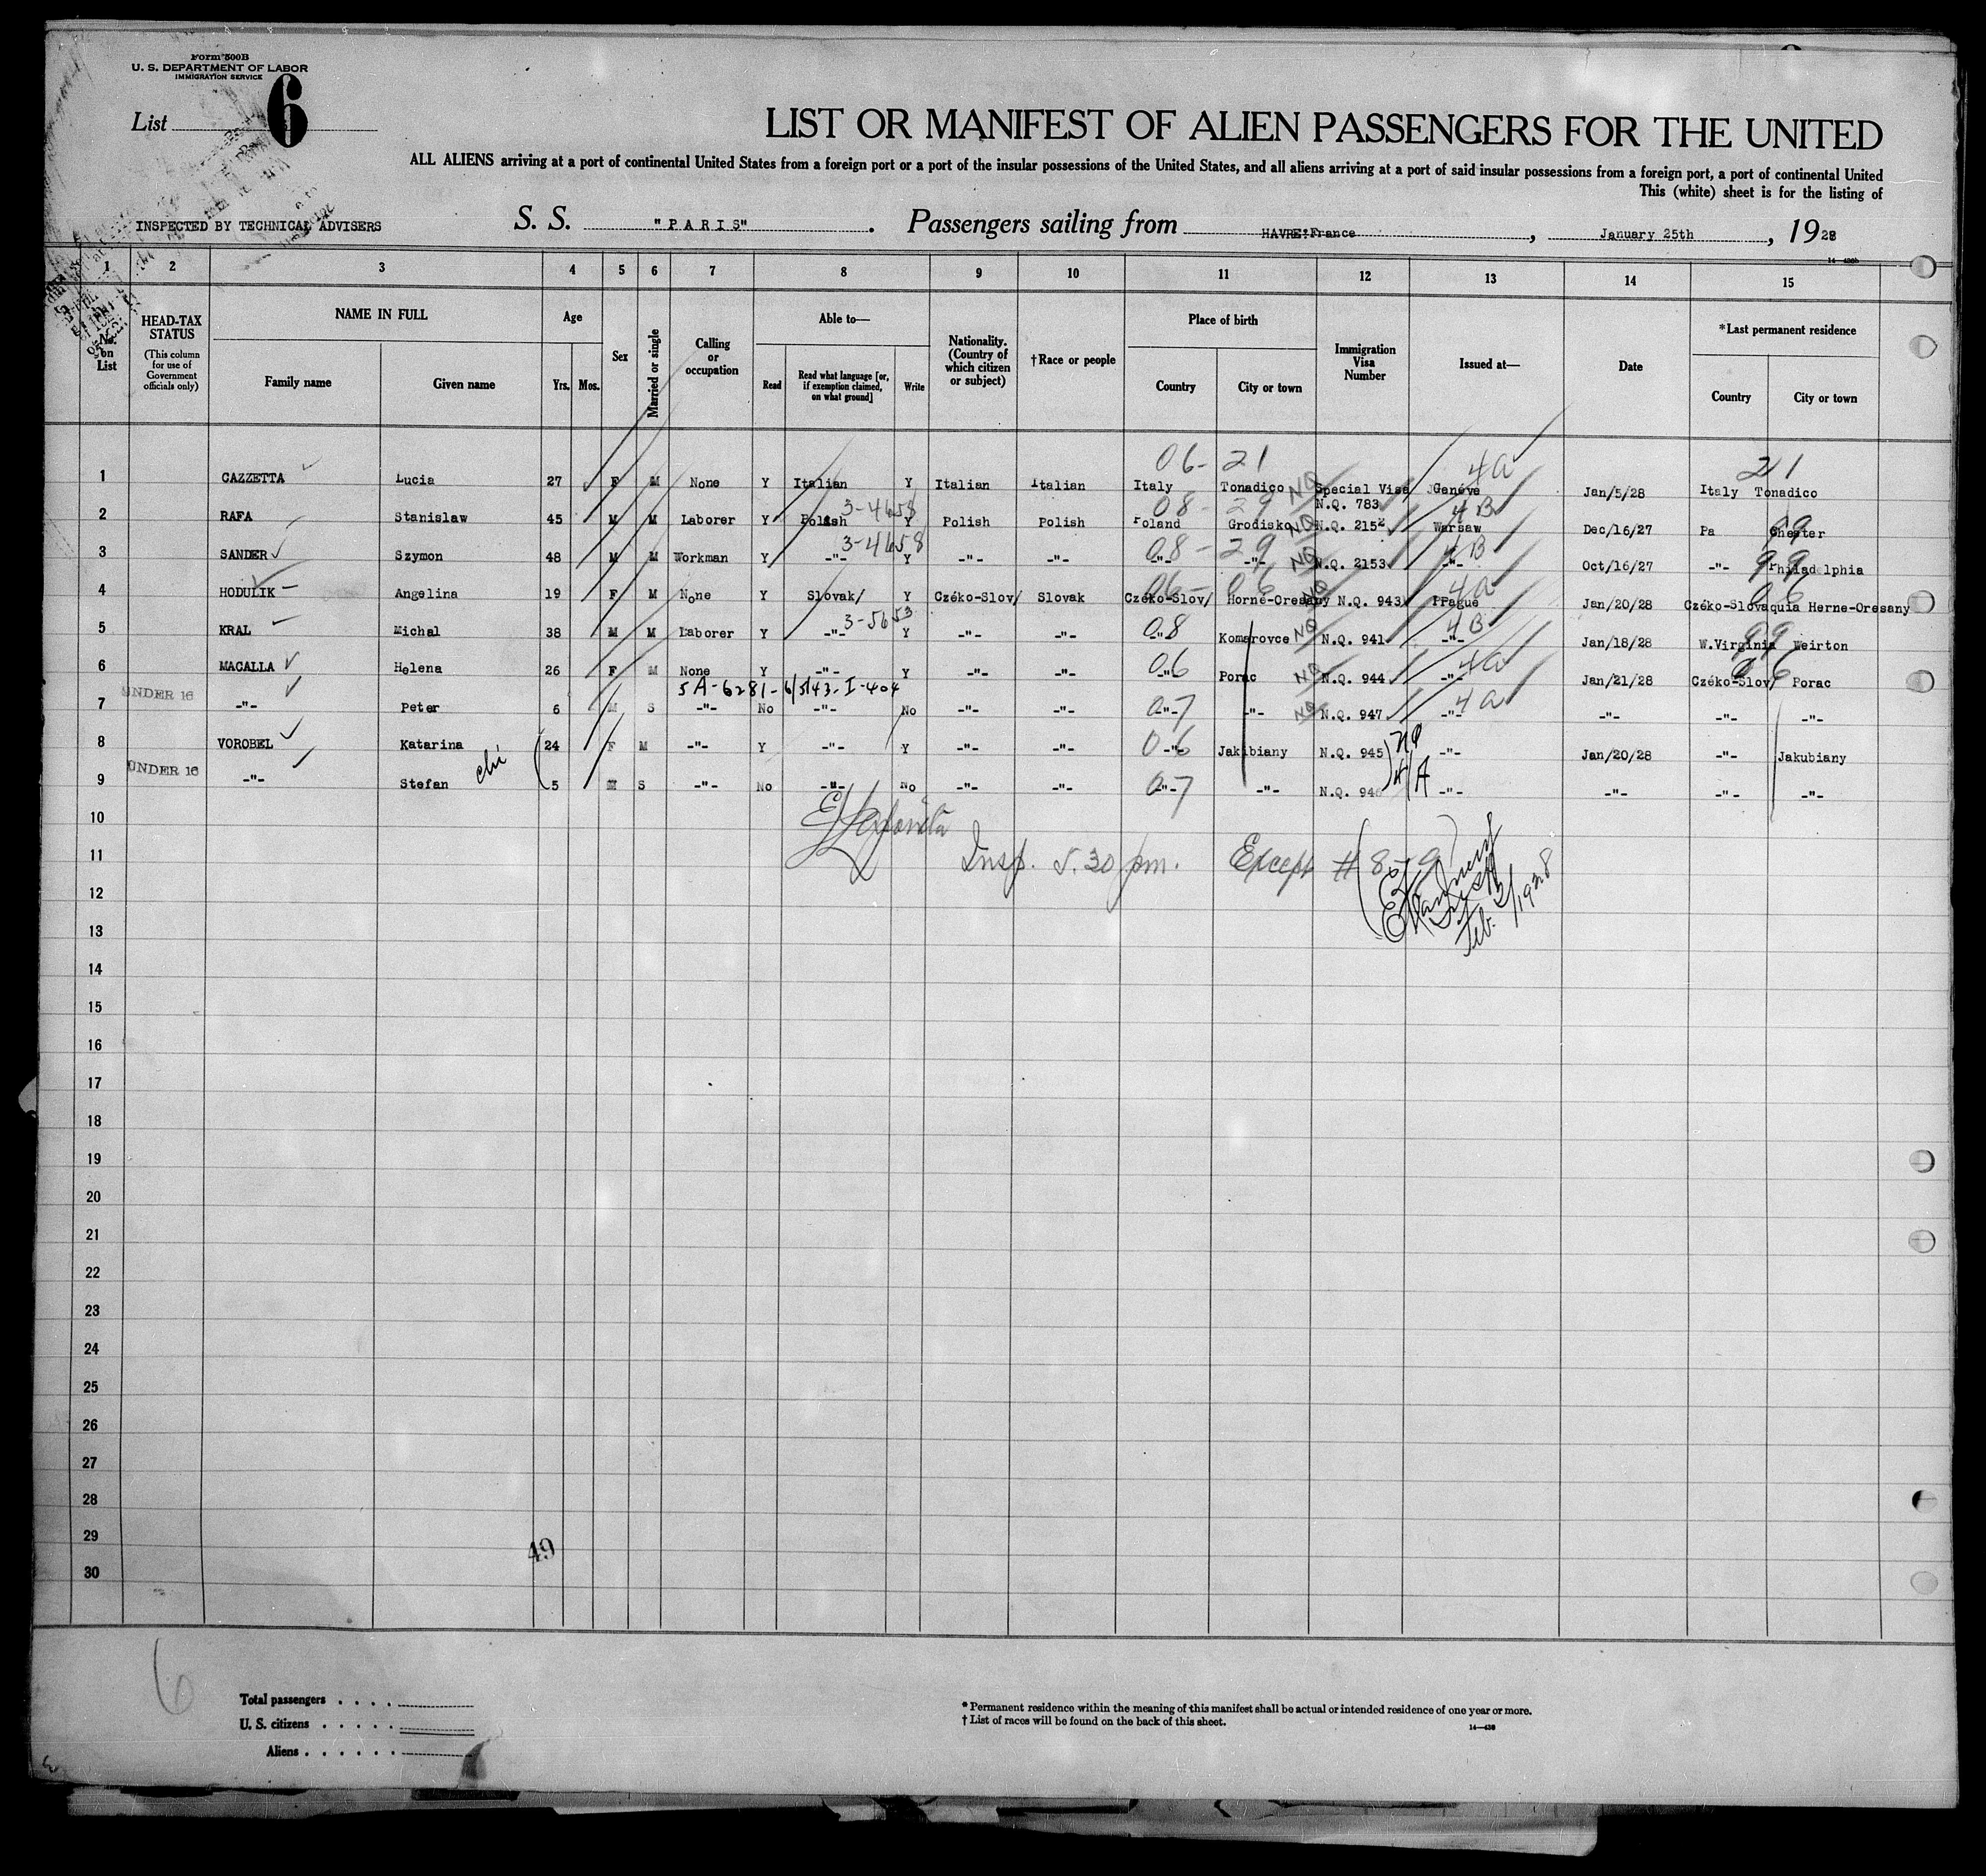 Form 500B
U. S. DEPARTMENT OF LABOR
IMMIGRATION SERVICE
List 6
LIST OR MANIFEST OF ALIEN PASSENGERS FOR THE UNITED
ALL ALIENS arriving at a port of continental United States from a foreign port or a port of the insular possessions of the United States, and all aliens arriving at a port of said insular possessions from a foreign port, a port of continental United
This (white) sheet is for the listing of
INSPECTED BY TECHNICAL ADVISERS
S. S. "PARIS". Passengers sailing from HAVRE:France, January 25th, 1928
1 2 3 4 5 6 7 8 9 10 11 12 13 14 15
No. on List
HEAD-TAX STATUS
(This column for use of Government officials only)
NAME IN FULL
Family name Given name
Age
Yrs. Mos.
Sex
Married or single
Calling or occupation
Able to—
Read
Read what language [or, if exemption claimed, on what ground]
Write
Nationality. (Country of which citizen or subject)
†Race or people
Place of birth
Country City or town
Immigration Visa Number
Issued at—
Date
*Last permanent residence
Country City or town
06- 21 4a 21
1 CAZZETTA Lucia 27 F M None Y Italian Y Italian Italian Italy Tonadico NQ Special Visa N.Q. 783 Genéve Jan/5/28 Italy Tonadico
3-4658 08- 29 4B 99
2 RAFA Stanislaw 45 M M Laborer Y Polish Y Polish Polish Poland Grodisko NQ N.Q. 2152 Warsaw Dec/16/27 Pa Chester
3-4658 08- 29 4B 99
3 SANDER Szymon 48 M M Workman Y -"- Y -"- -"- -"- -"- NQ N.Q. 2153 -"- Oct/16/27 -"- Philadelphia
06- 06 4a 06
4 HODULIK Angelina 19 F M None Y Slovak/ Y Czéko-Slov/ Slovak Czéko-Slov/ Horne-Oresany N.Q. 943 Prague Jan/20/28 Czéko-Slovaquia Herne-Oresany
3-5653 08 4B 99
5 KRAL Michal 38 M M Laborer Y -"- Y -"- -"- -"- Komarovce NQ N.Q. 941 -"- Jan/18/28 W.Virginia Weirton
06 4a 06
6 MACALLA Helena 26 F M None Y -"- Y -"- -"- -"- Porac NQ N.Q. 944 -"- Jan/21/28 Czéko-Slov/ Porac
UNDER 16 5A-6281-6/5/43-I-404 07 4a
7 -"- Peter 6 M S -"- No -"- No -"- -"- -"- -"- NQ N.Q. 947 -"- -"- -"- -"-
8 VOROBEL Katarina 24 F M -"- Y -"- Y -"- -"- 06 -"- Jakibiany N.Q. 945 NQ -"- Jan/20/28 -"- Jakubiany
UNDER 16
9 -"- Stefan 5 M S -"- No -"- No -"- -"- 07 -"- -"- N.Q. 946 4A -"- -"- -"- -"-
10
11 Insp. 5.30 pm. Except # 8-9
12 Feb. 2/1928
13
14
15
16
17
18
19
20
21
22
23
24
25
26
27
28
29 49
30
6
Total passengers . . . .
U. S. citizens . . . . .
Aliens . . . . . .
* Permanent residence within the meaning of this manifest shall be actual or intended residence of one year or more.
† List of races will be found on the back of this sheet.
14—430